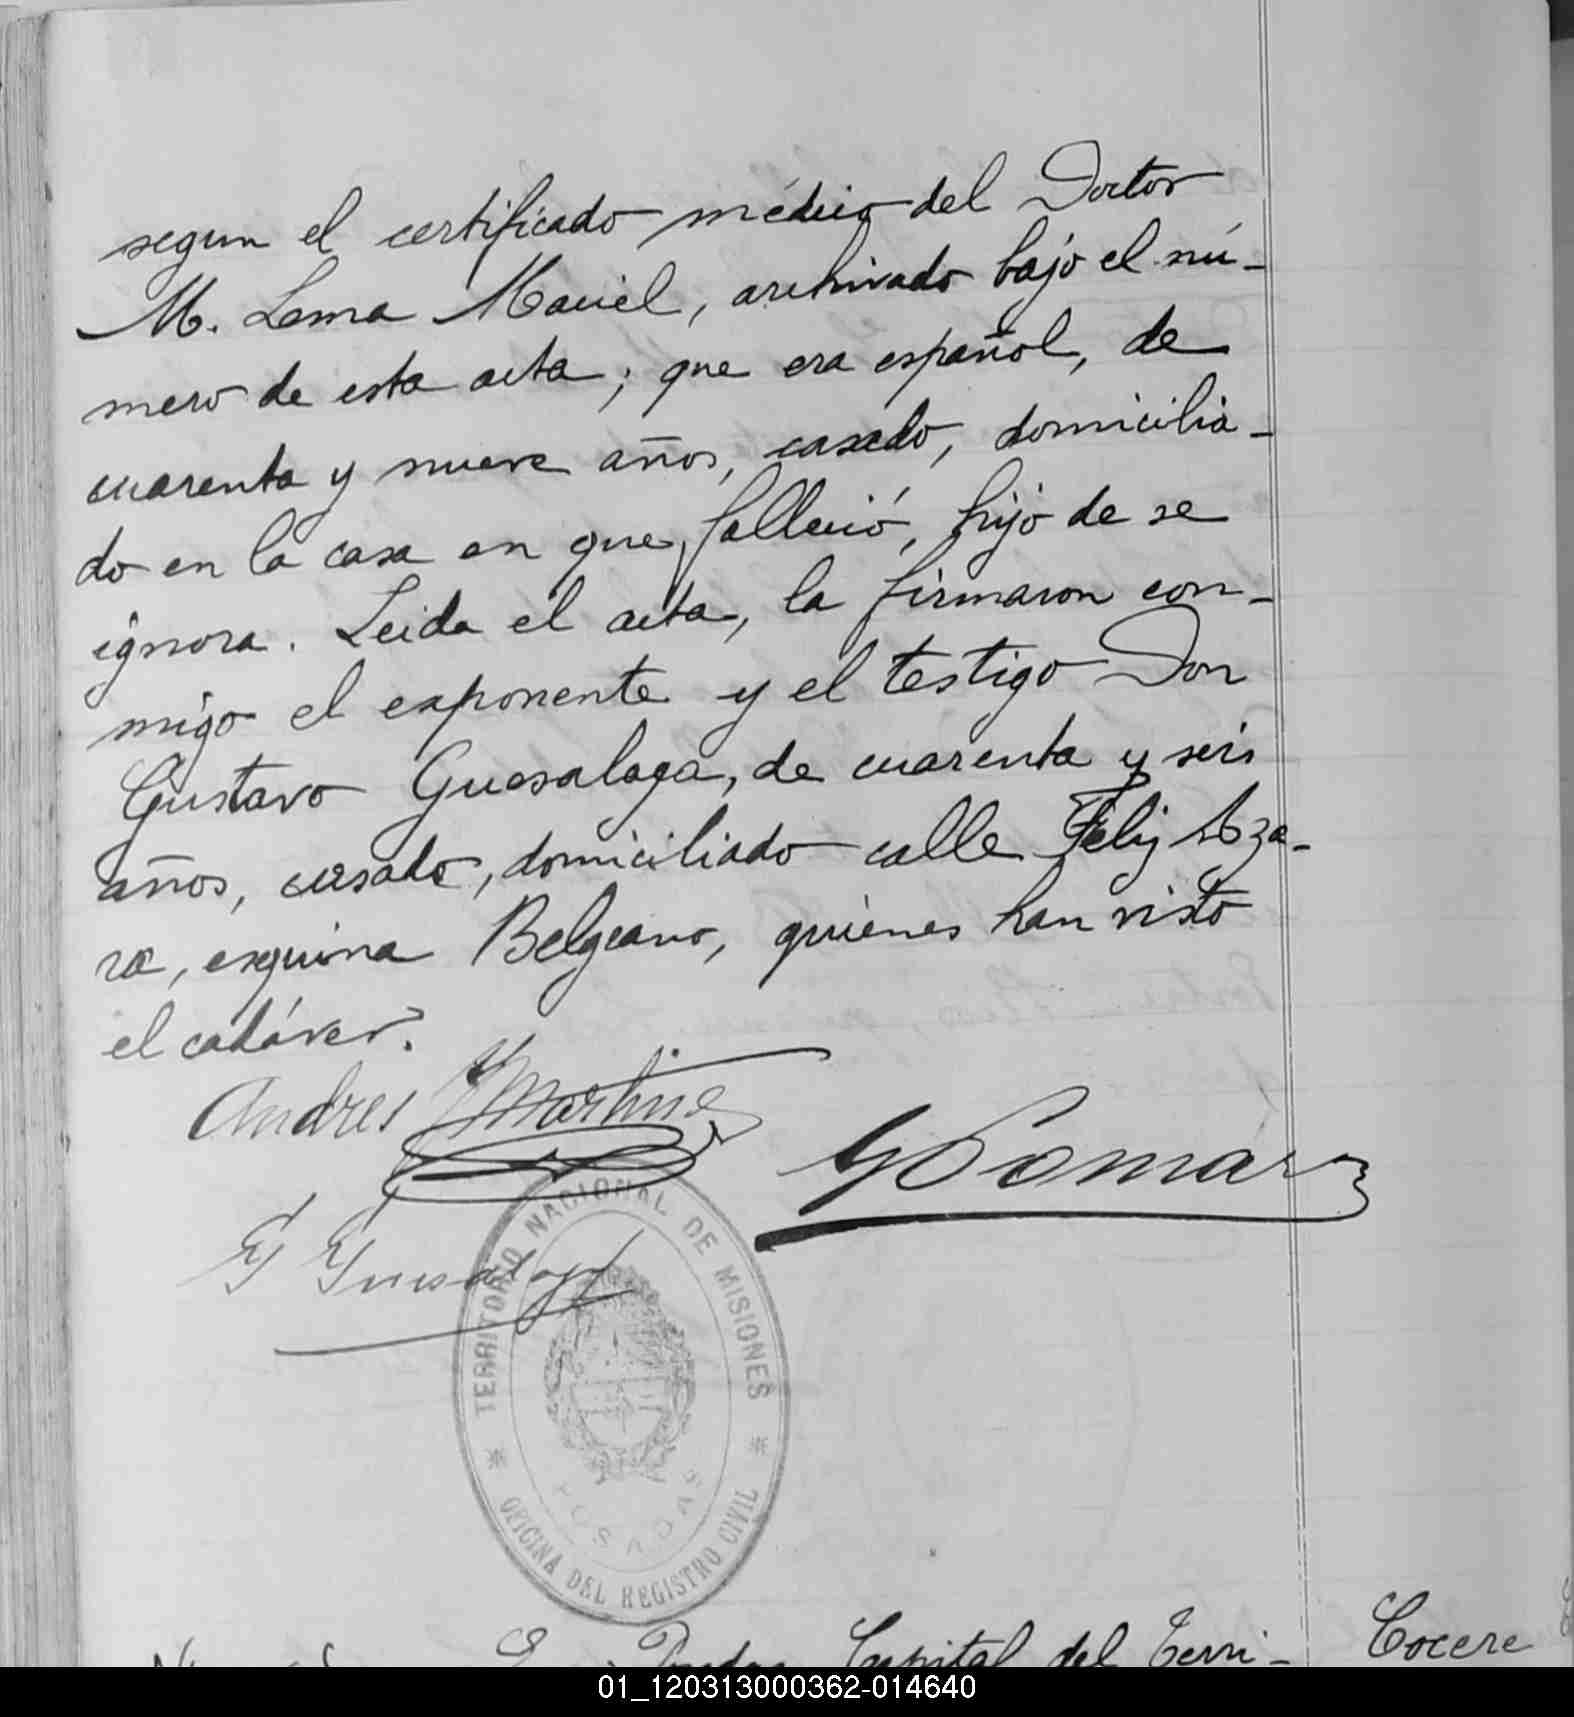 segun el certificado médico del Doctor
M. Lema Maciel, archivado bajo el nú-
mero de esta acta; que era español, de
cuarenta y nueve años, casado, domicilia-
do en la casa en que falleció, hijo de se
ignora. Leida el acta, la firmaron con-
migo el exponente y el testigo Don
Gustavo Guesalaga, de cuarenta y seis
años, casado, domiciliado calle Feliz Aza-
ra, esquina Belgrano, quienes han visto
el cadáver.
Andres Martinez
G Pomar
G Guesalaga
TERRITORIO NACIONAL DE MISIONES
POSADAS
OFICINA DEL REGISTRO CIVIL
En Posadas Capital del Terri-
Cocere
01_120313000362-014640